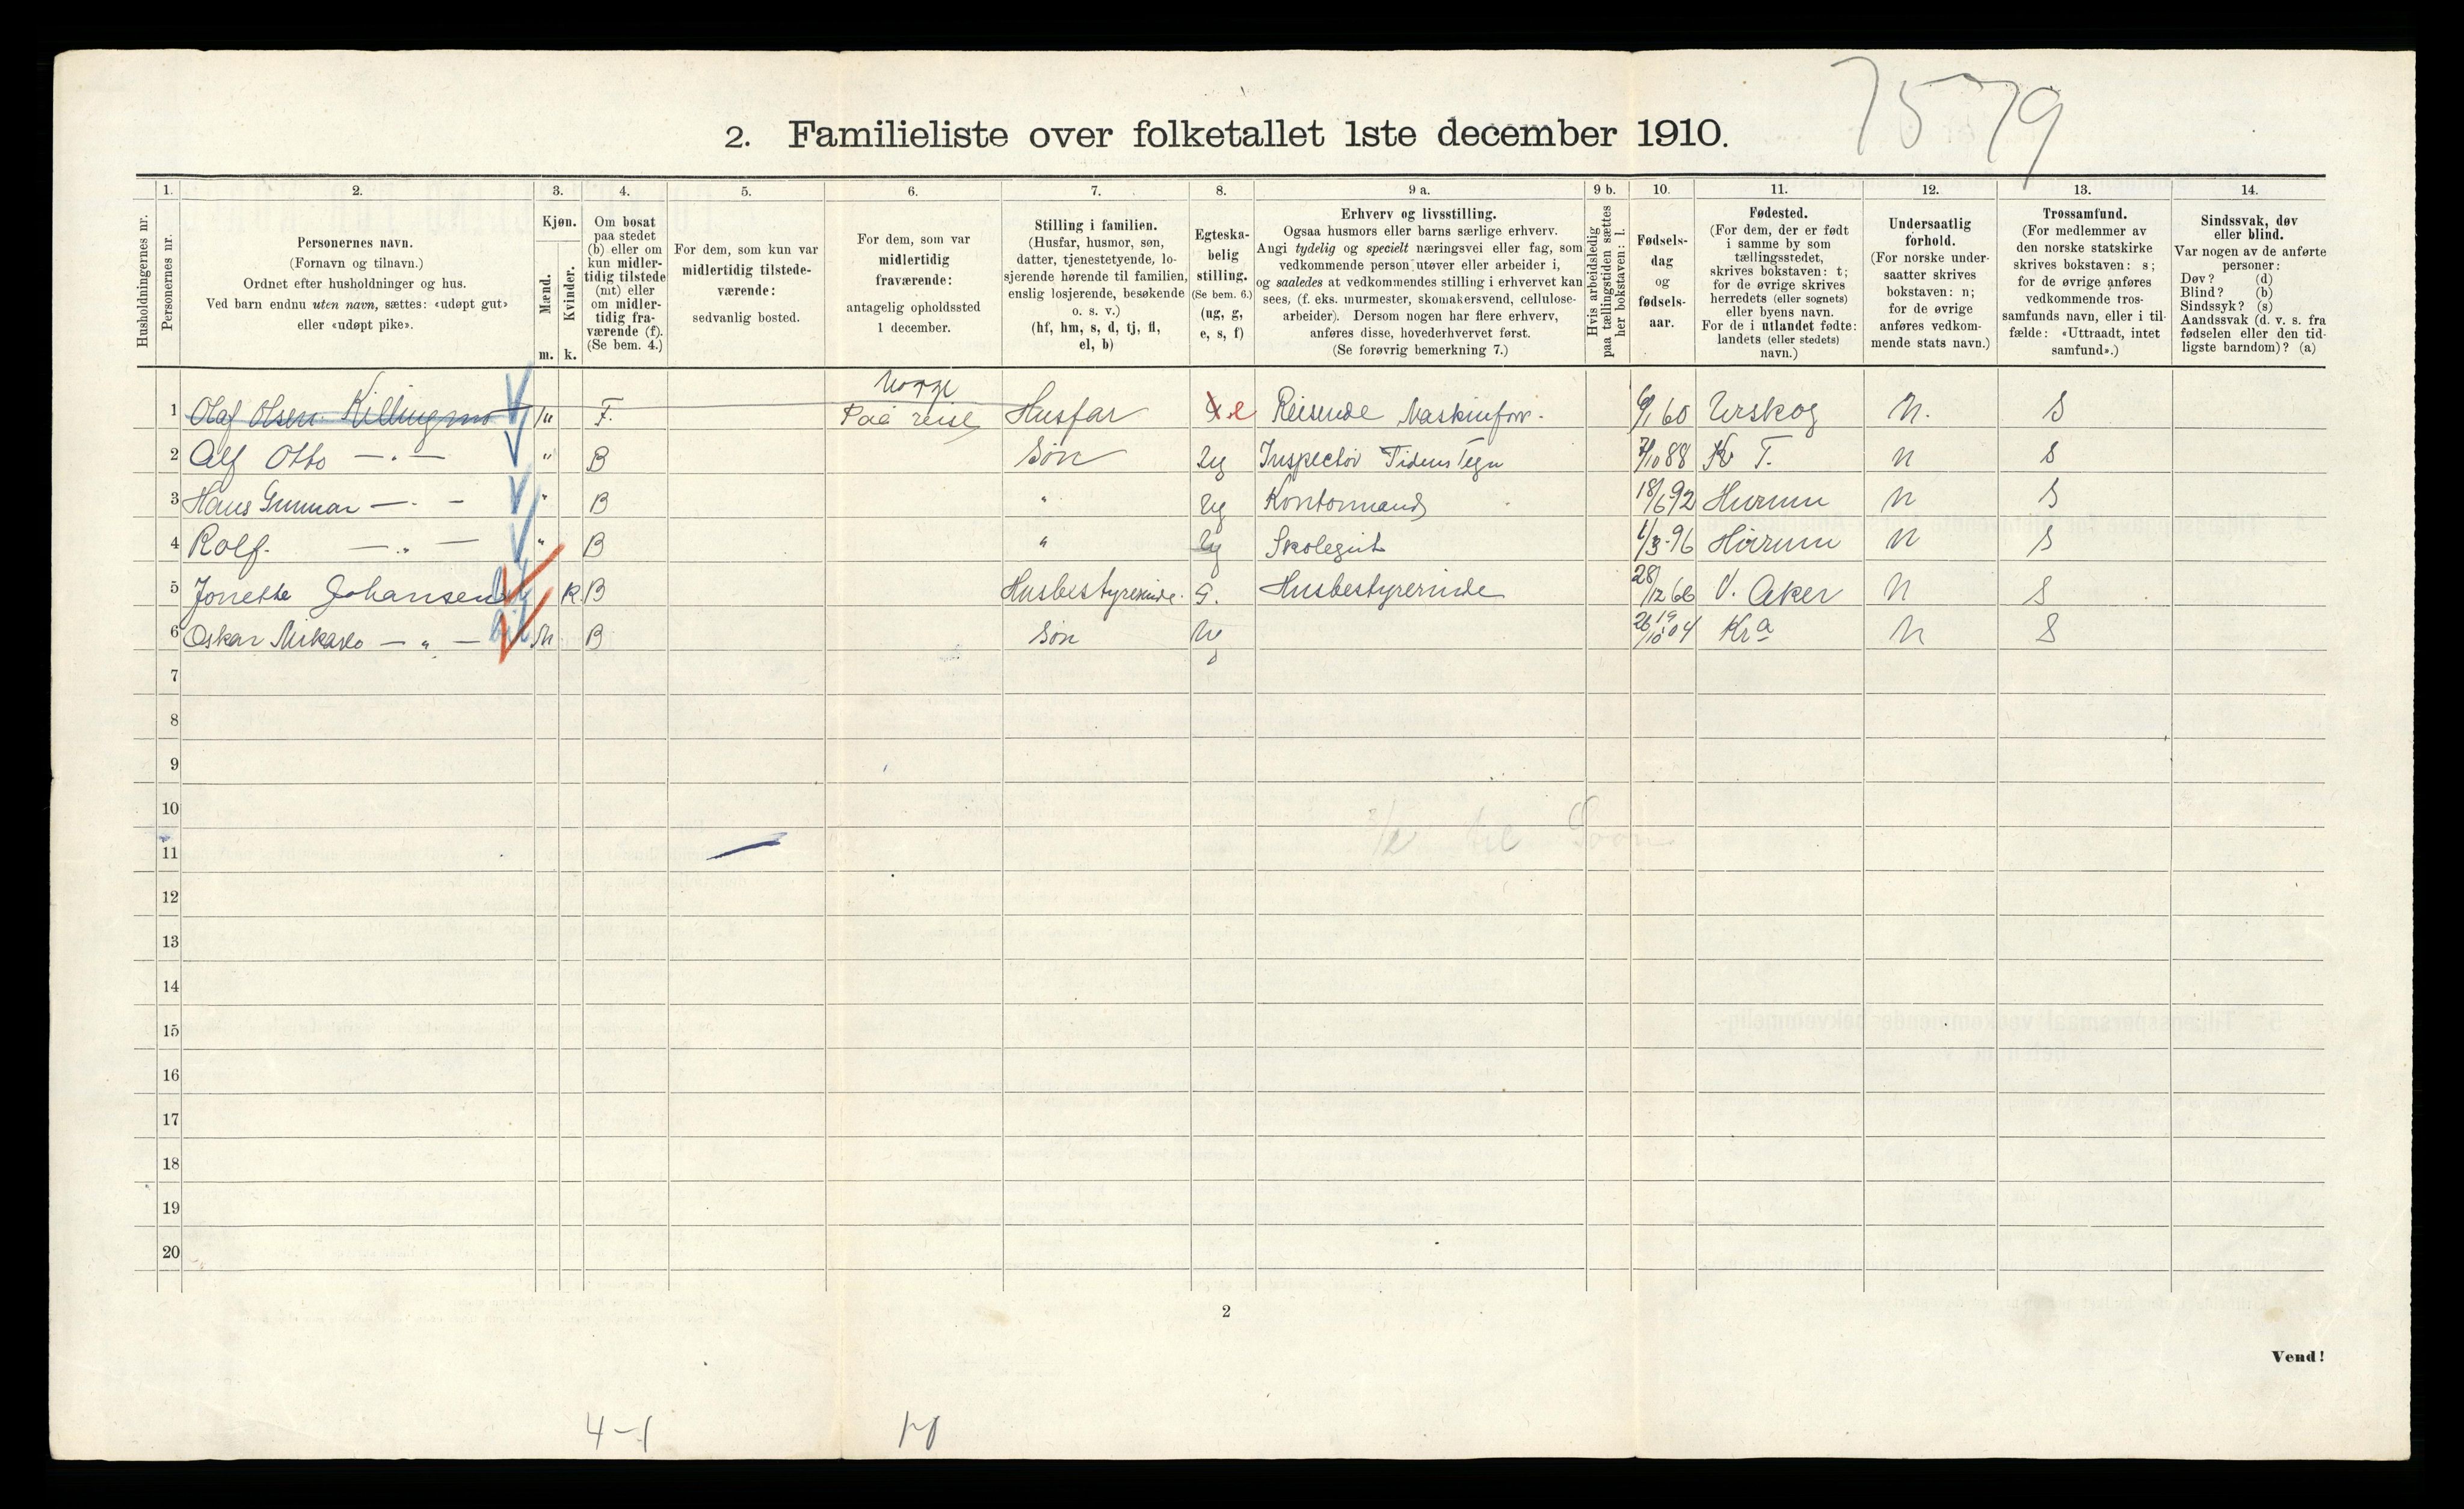 7579
2. Familieliste over folketallet 1ste december 1910.
1. 2. 3. 4. 5. 6. 7. 8. 9 a. 9 b. 10. 11. 12. 13. 14.
Husholdningernes nr.
Personernes nr.
Personernes navn.
(Fornavn og tilnavn.)
Ordnet efter husholdninger og hus.
Ved barn endnu uten navn, sættes: «udøpt gut»
eller «udøpt pike».
Kjøn.
Mænd.
Kvinder.
m. k.
Om bosat
paa stedet
(b) eller om
kun midler-
tidig tilstede
(mt) eller
om midler-
tidig fra-
værende (f).
(Se bem. 4.)
For dem, som kun var
midlertidig tilstede-
værende:
sedvanlig bosted.
For dem, som var
midlertidig
fraværende:
antagelig opholdssted
1 december.
Stilling i familien.
(Husfar, husmor, søn,
datter, tjenestetyende, lo-
sjerende hørende til familien,
enslig losjerende, besøkende
o. s. v.)
(hf, hm, s, d, tj, fl,
el, b)
Egteska-
belig
stilling.
(Se bem. 6.)
(ug, g,
e, s, f)
Erhverv og livsstilling.
Ogsaa husmors eller barns særlige erhverv.
Angi tydelig og specielt næringsvei eller fag, som
vedkommende person utøver eller arbeider i,
og saaledes at vedkommendes stilling i erhvervet kan
sees, (f. eks. murmester, skomakersvend, cellulose-
arbeider). Dersom nogen har flere erhverv,
anføres disse, hovederhvervet først.
(Se forøvrig bemerkning 7.)
Hvis arbeidsledig
paa tællingstiden sættes
her bokstaven: l.
Fødsels-
dag
og
fødsels-
aar.
Fødested.
(For dem, der er født
i samme by som
tællingsstedet,
skrives bokstaven: t;
for de øvrige skrives
herredets (eller sognets)
eller byens navn.
For de i utlandet fødte:
landets (eller stedets)
navn.)
Undersaatlig
forhold.
(For norske under-
saatter skrives
bokstaven: n;
for de øvrige
anføres vedkom-
mende stats navn.)
Trossamfund.
(For medlemmer av
den norske statskirke
skrives bokstaven: s;
for de øvrige anføres
vedkommende tros-
samfunds navn, eller i til-
fælde: «Uttraadt, intet
samfund».)
Sindssvak, døv
eller blind.
Var nogen av de anførte
personer:
Døv? (d)
Blind? (b)
Sindssyk? (s)
Aandssvak (d. v. s. fra
fødselen eller den tid-
ligste barndom)? (a)
Norge
1 Olaf Olsen Killingmo m F. Paa reise Husfar e Reisende Maskinforr. 6/1 60 Urskog N. S
2 Alf Otto — " — " B Søn Ug Inspectør Tidens Tegn 7/10 88 T. N S
3 Hans Gunnar — " — " B " Ug Kontormand 18/6 92 Hurum N S
4 Rolf — " — " B " Ug Skolegut 1/3 96 Hurum N S
5 Jonette Johansen K B Husbestyrerinde G. Husbestyrerinde 28/12 66 V. Aker N S
6 Oskar — " — M B Søn Ug 26/10 1904 Kra N S
7
8
9
10
11
12
13
14
15
16
17
18
19
20
2
Vend!
4-1